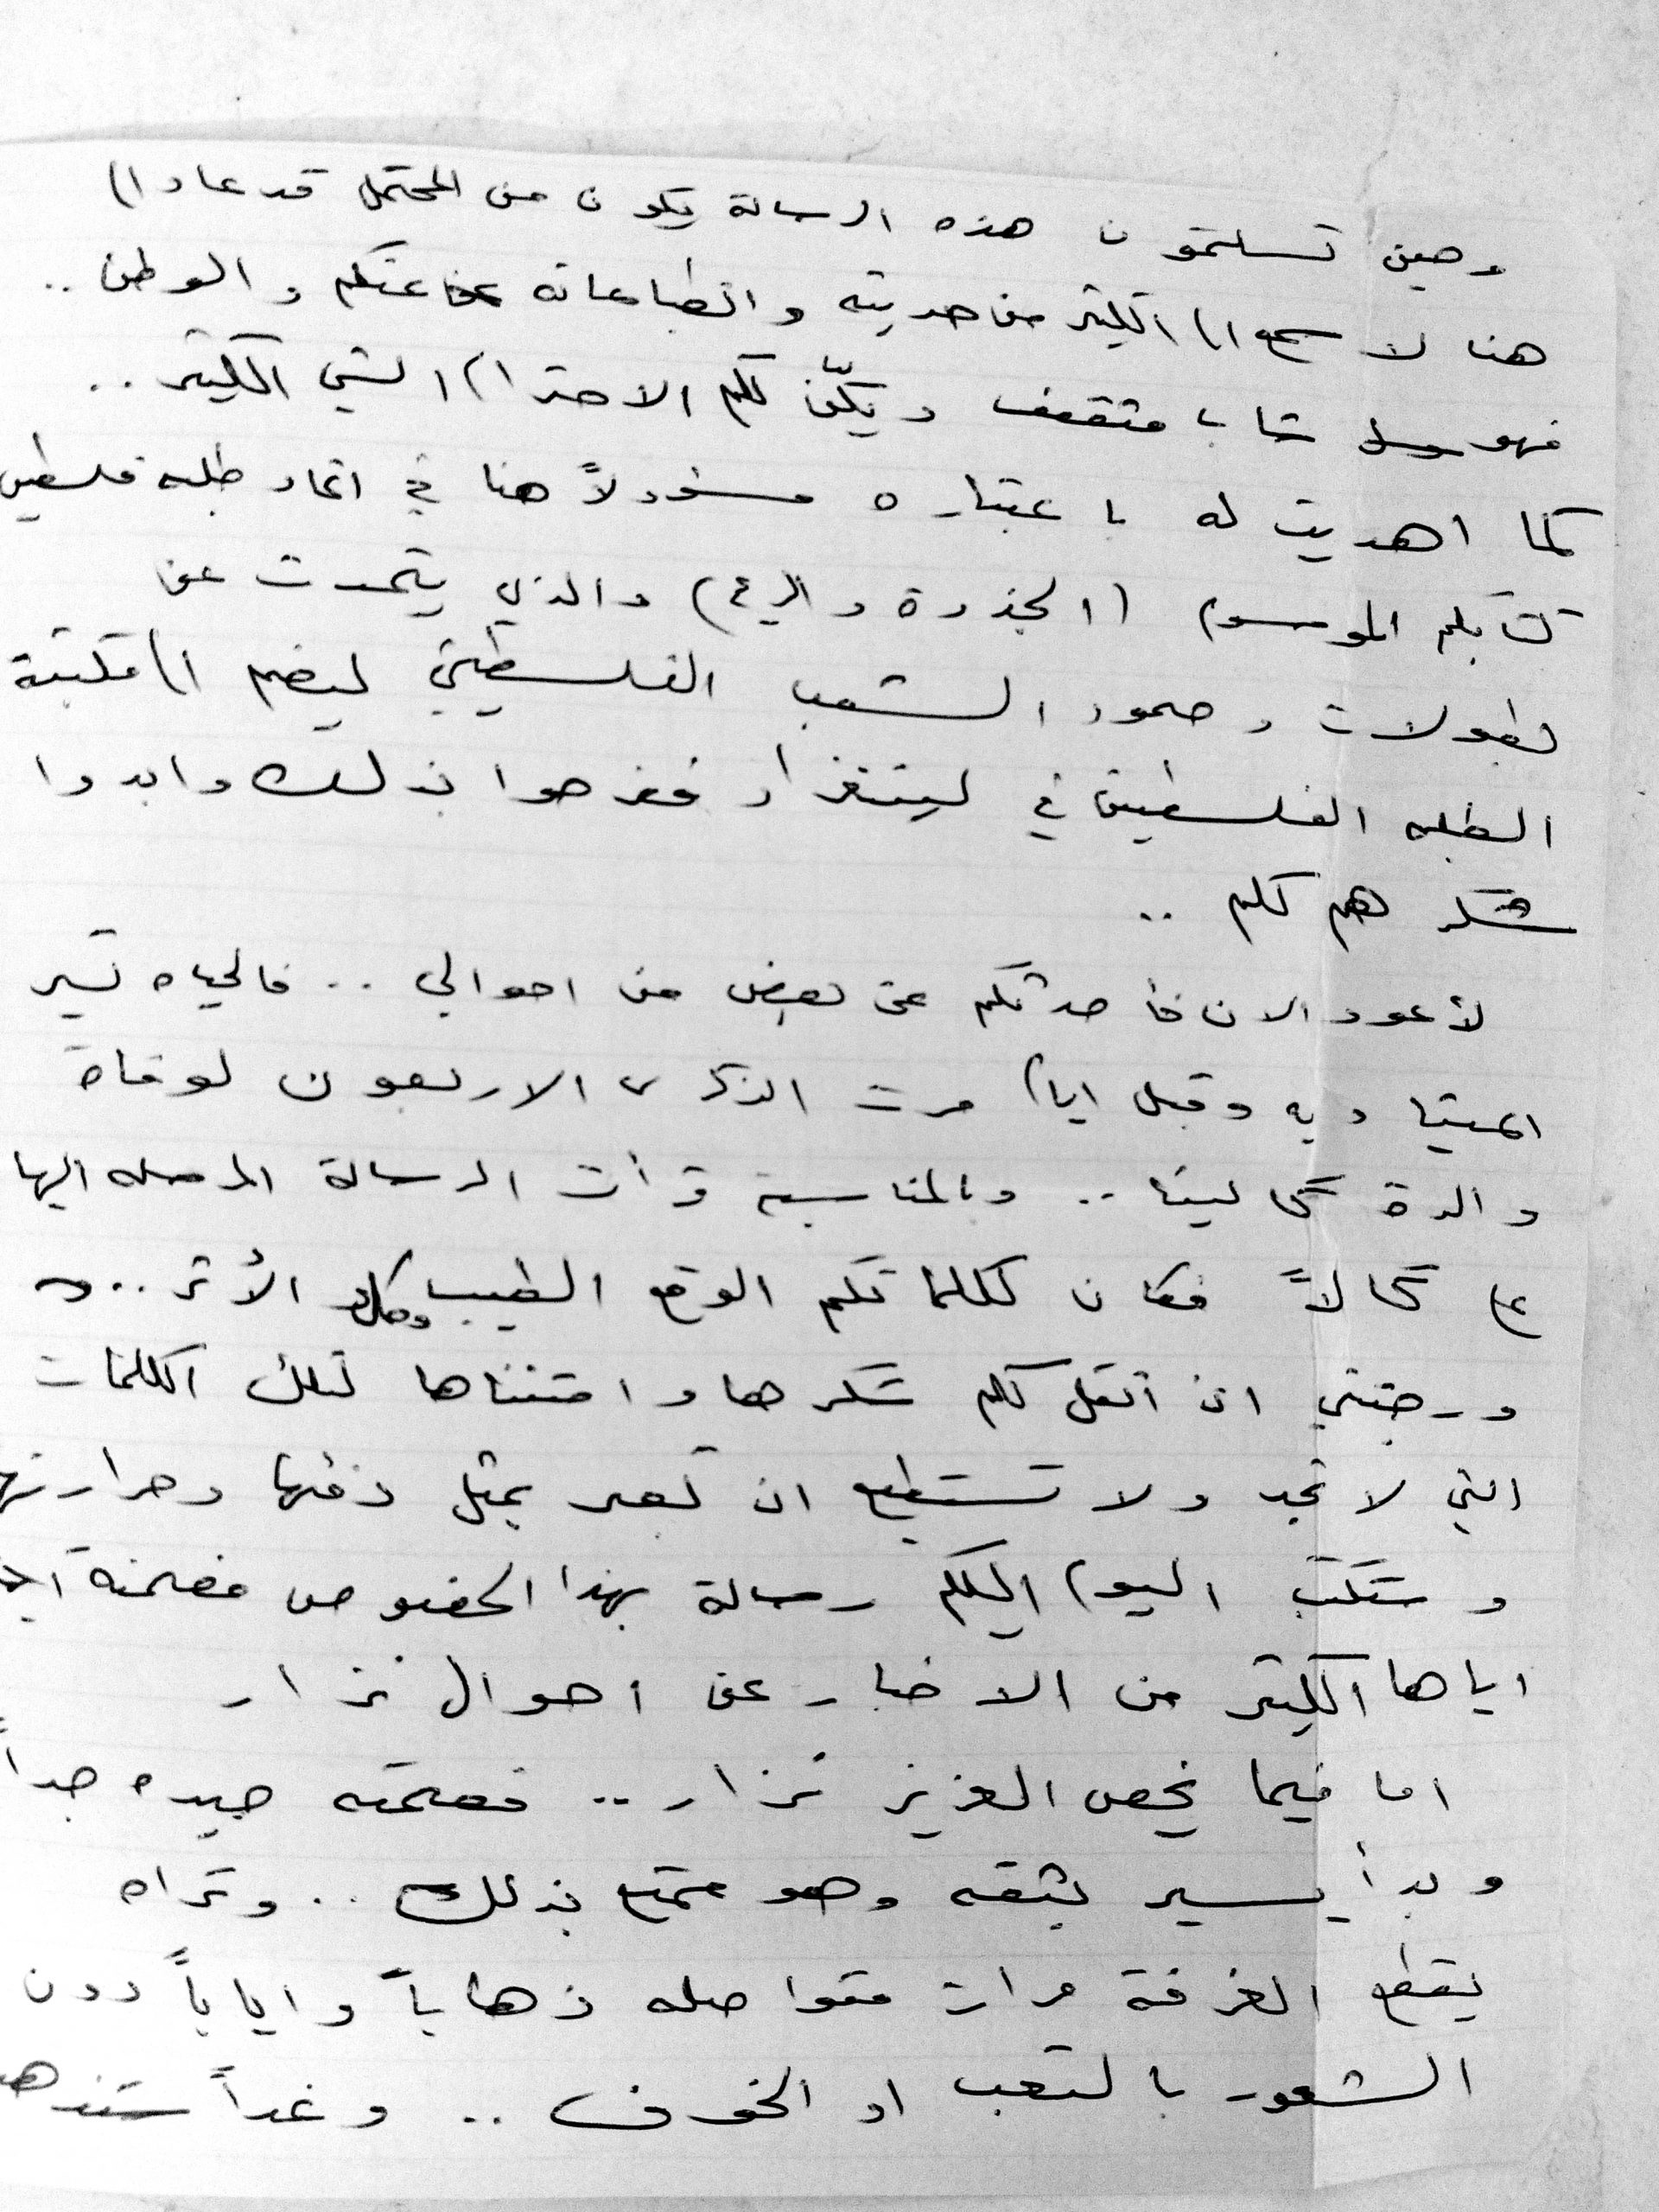 وحين تستلمون هذه الرسالة يكون من المحتمل قد عاد الى
هنا لاسمع الى الكثير من حديثه وانطباعاته عنكم والوطن ..
فهو شاب مثقف ويكنّ لكم الاحترام الشي الكثير ..
كما اهديت له باعتباره مسؤولاً هنا في اتحاد طلبه فلسطين
كتابكم الموسوم (الجذوة والريح) والذي يتحدث عن
بطولات وصمود الشعب الفلسطيني ليضم الى مكتبة
الطلبه الفلسطينين في لينينغراد ففرحوا بذلك وابدوا
شكرهم لكم ..
لأعود الان فأحدثكم عن بعض من احوالي .. فالحياه تسير
اعتياديه وقبل ايام مرت الذكرى الاربعون لوفاة
والدة گالينا .. وبالمناسبة قرأت الرسالة المرسله اليها
فكان لكلماتكم الوقع الطيب الأثر .. و
ورجتني ان انقل لكم شكرها وامتنناها لتلك الكلمات
التي لا تجد ولا تستطيع ان تعبر بمثل دفئها وحرارتها
وستكتب اليوم اليكم رسالة بهذا الخصوص مضمنة
اياها الكثير من الاخبار عن احوال نزار
اما فيما يخص العزيز نزار .. فصحته جيده جداً
وبدأ يسير بثقه وهو متمتع بذلك .. وتراه
يقطع الغرفة مرات متواصله ذهاباً واياباً دون
الشعور بالتعب او الخوف .. وغداً سنذهب